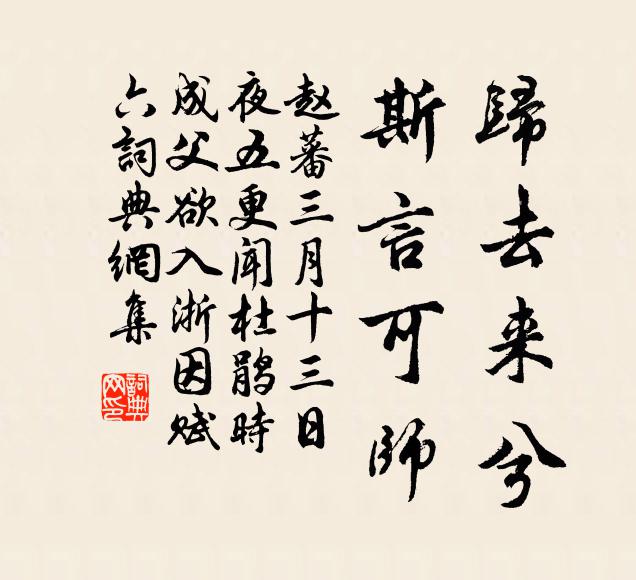 歸去来兮
斯言可師
赵蕃三月十三日
夜五更闻杜鹃時
成父欲入浙因赋
六詞典網集
詞典
网印